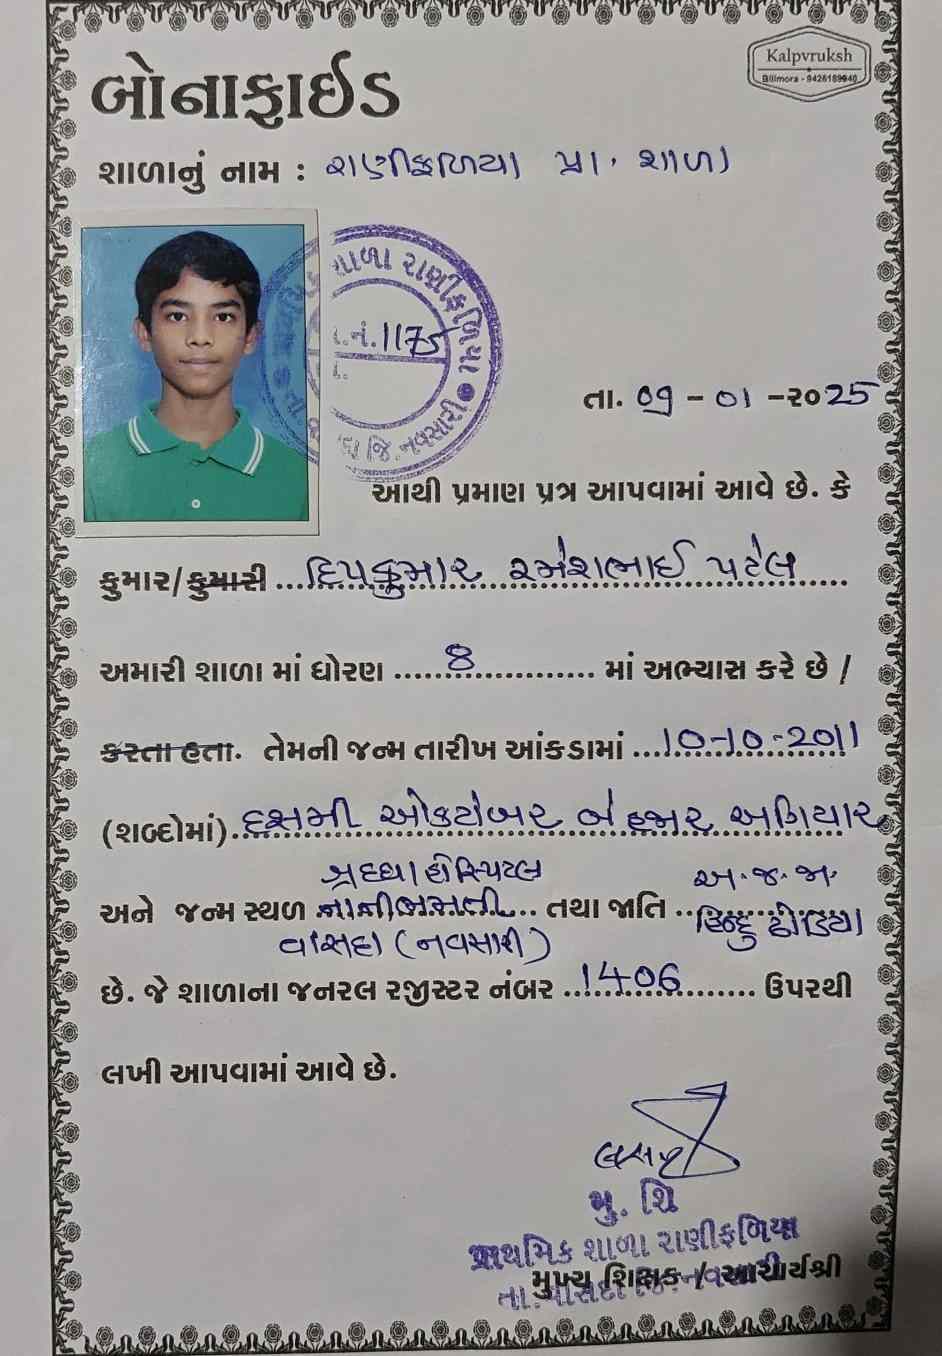 Kalpvruksh
Bilimora - 9426189940
બોનાફાઈડ
શાળાનું નામ : રાણીફળિયા પ્રા. શાળા
શાળા રાણીફળિયા
નં. 1175
જિ. નવસારી
તા. 09 - 01 - ૨૦25
આથી પ્રમાણ પત્ર આપવામાં આવે છે. કે
કુમાર/કુમારી ...દિપકુમાર રમેશભાઈ પટેલ......
અમારી શાળા માં ધોરણ ......8.................. માં અભ્યાસ કરે છે /
કરતા હતા. તેમની જન્મ તારીખ આંકડામાં ...10-10-2011
(શબ્દોમાં)..દસમી ઓકટોબર બે હજાર અગિયાર
શ્રધ્ધા હોસ્પિટલ અ.જ.જા.
અને જન્મ સ્થળ નાનીભમતી... તથા જાતિ ..હિન્દુ ઢોડિયા
વાંસદા (નવસારી)
છે. જે શાળાના જનરલ રજીસ્ટર નંબર ...1406......... ઉપરથી
લખી આપવામાં આવે છે.
મુ. શિ
પ્રાથમિક શાળા રાણીફળિયા
મુખ્ય શિક્ષક / આચાર્યશ્રી
તા. વાંસદા જિ. નવસારી